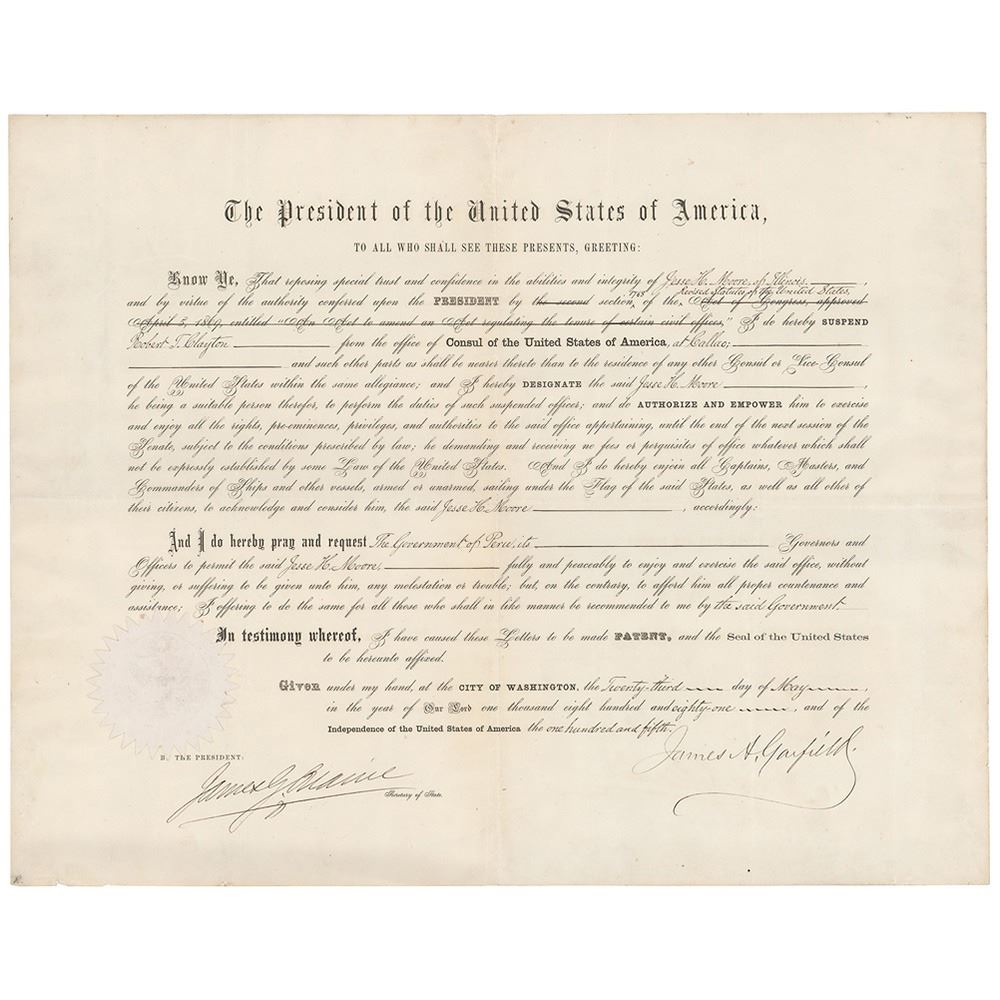 The President of the United States of America,
TO ALL WHO SHALL SEE THESE PRESENTS, GREETING:
Know Ye, That reposing special trust and confidence in the abilities and integrity of Jesse H. Moore, of Illinois,
1768 Revised Statutes of the United States,
and by virtue of the authority conferred upon the PRESIDENT by the second section, of the Act of Congress, approved
April 5, 1869, entitled "An Act to amend an Act regulating the tenure of certain civil offices," I do hereby SUSPEND
Robert T. Clayton from the office of Consul of the United States of America, at Callao;
and such other parts as shall be nearer thereto than to the residence of any other Consul or Vice-Consul
of the United States within the same allegiance; and I hereby DESIGNATE the said Jesse H. Moore,
he being a suitable person therefor, to perform the duties of such suspended officer; and do AUTHORIZE AND EMPOWER him to exercise
and enjoy all the rights, pre-eminences, privileges, and authorities to the said office appertaining, until the end of the next session of the
Senate, subject to the conditions prescribed by law; he demanding and receiving no fees or perquisites of office whatever which shall
not be expressly established by some Law of the United States. And I do hereby enjoin all Captains, Masters, and
Commanders of Ships and other vessels, armed or unarmed, sailing under the Flag of the said States, as well as all other of
their citizens, to acknowledge and consider him, the said Jesse H. Moore, accordingly:
And I do hereby pray and request The Government of Peru, its Governors and
Officers to permit the said Jesse H. Moore, fully and peaceably to enjoy and exercise the said office, without
giving, or suffering to be given unto him, any molestation or trouble; but, on the contrary, to afford him all proper countenance and
assistance; I offering to do the same for all those who shall in like manner be recommended to me by the said Government.
In testimony whereof, I have caused these Letters to be made PATENT, and the Seal of the United States
to be hereunto affixed.
Given under my hand, at the CITY OF WASHINGTON, the Twenty-third day of May,
in the year of Our Lord one thousand eight hundred and eighty-one, and of the
Independence of the United States of America the one hundred and fifth.
James A. Garfield.
B. THE PRESIDENT:
James G. Blaine
Secretary of State.